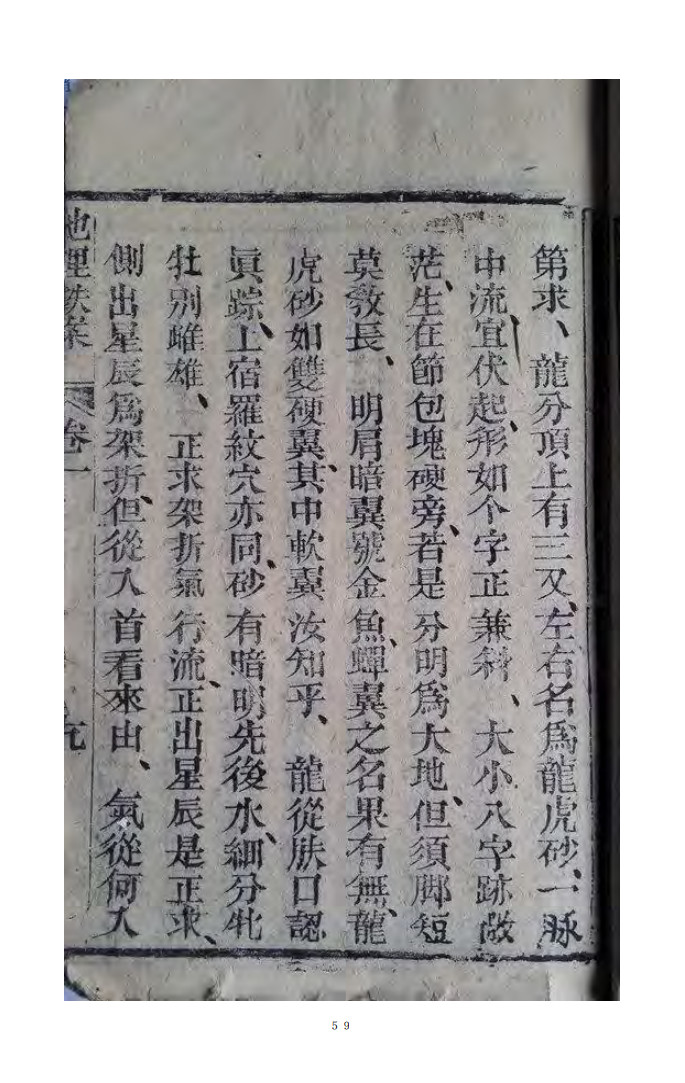 第求、龍分頂上有三叉、左右名爲龍虎砂、一脉
中流宜伏起、形如个字正兼斜、大小八字跡微
茫、生在節包塊硬旁、若是分明爲大地、但須脚短
莫教長、明肩暗翼號金魚、蟬翼之名果有無、龍
虎砂如雙硬翼、其中軟翼汝知乎、龍從肤口認
眞踪、上宿羅紋穴亦同、砂有暗明先後水、細分牝
牡別雌雄、正求架折氣行流、正出星辰是正求、
側出星辰爲架折、但從入首看來由、氣從何入
地理鉄案 卷一
59